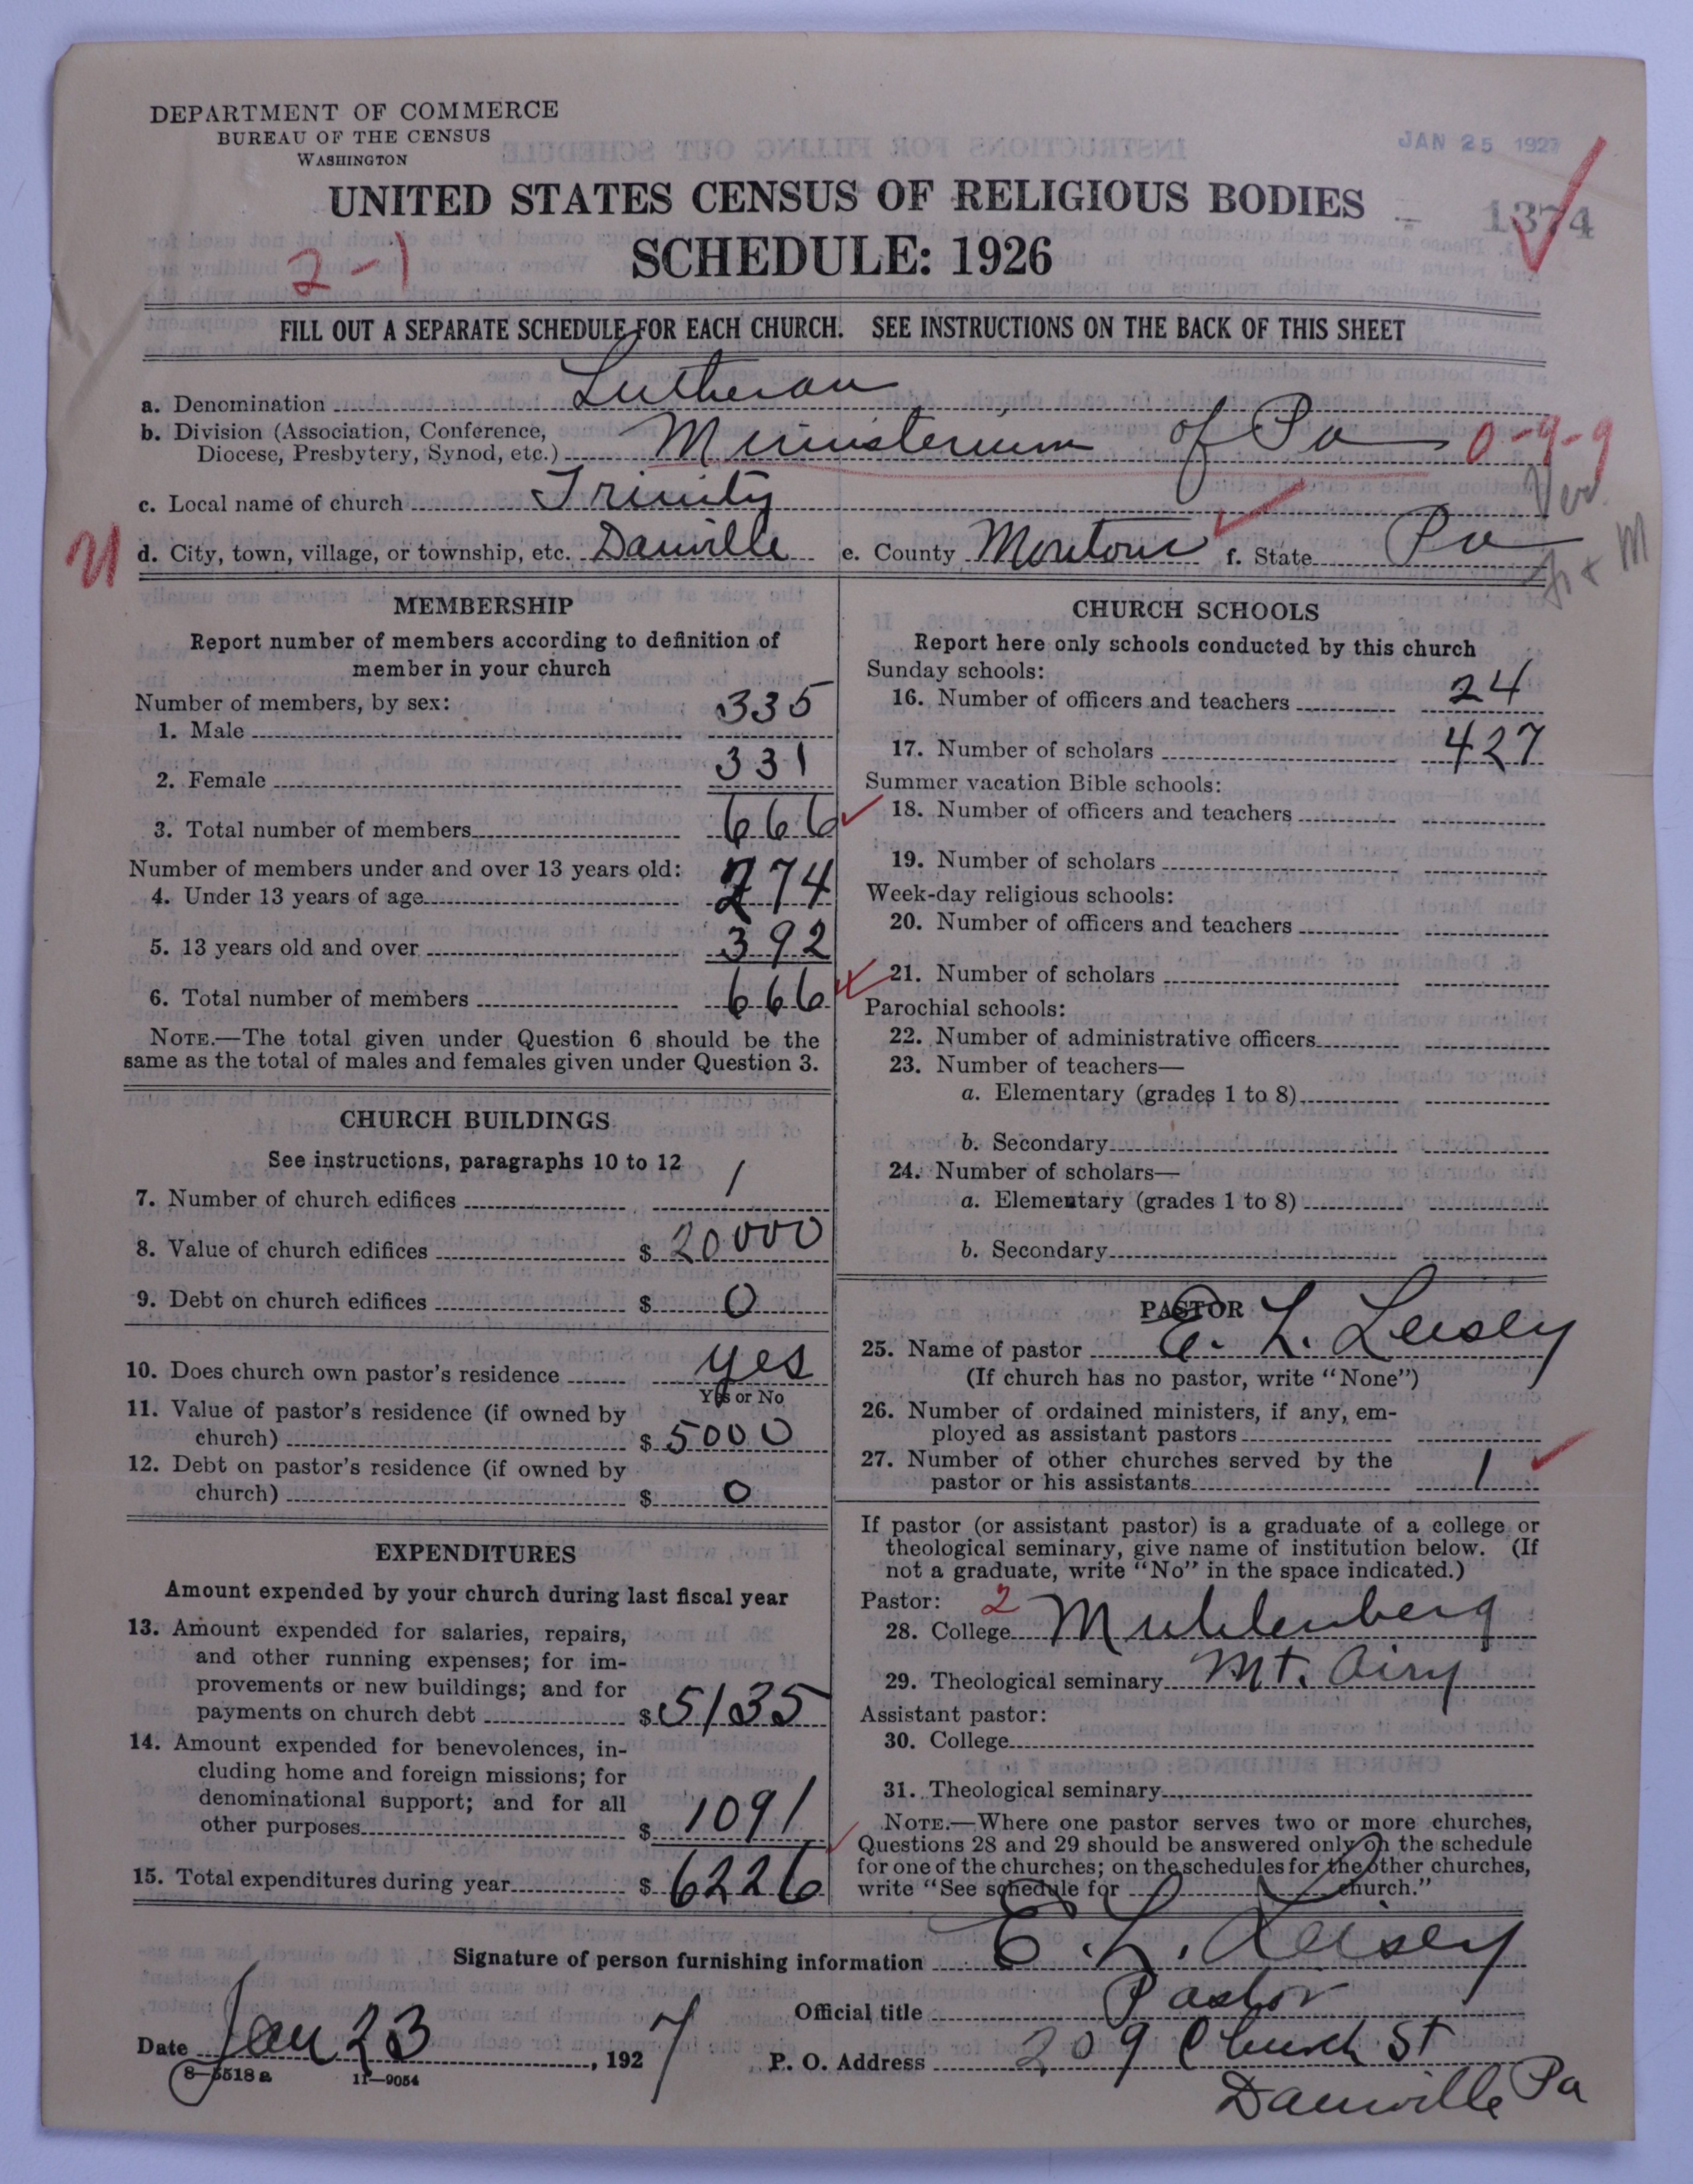 DEPARTMENT OF COMMERCE
BUREAU OF THE CENSUS
WASHINGTON
JAN 25 1927
UNITED STATES CENSUS OF RELIGIOUS BODIES
1374
SCHEDULE: 1926
2-1
FILL OUT A SEPARATE SCHEDULE FOR EACH CHURCH. SEE INSTRUCTIONS ON THE BACK OF THIS SHEET
a. Denomination Lutheran
b. Division (Association, Conference, Diocese, Presbytery, Synod, etc.) Ministerium of Pa 0-9-9
c. Local name of church Trinity
d. City, town, village, or township, etc. Danville e. County Montour f. State Pa
MEMBERSHIP
Report number of members according to definition of
member in your church
Number of members, by sex:
1. Male 335
2. Female 331
3. Total number of members 666
Number of members under and over 13 years old:
4. Under 13 years of age 274
5. 13 years old and over 392
6. Total number of members 666
NOTE.—The total given under Question 6 should be the
same as the total of males and females given under Question 3.
CHURCH BUILDINGS
See instructions, paragraphs 10 to 12
7. Number of church edifices 1
8. Value of church edifices $ 20000
9. Debt on church edifices $ 0
10. Does church own pastor's residence yes
Yes or No
11. Value of pastor's residence (if owned by
church) $ 5000
12. Debt on pastor's residence (if owned by
church) $ 0
EXPENDITURES
Amount expended by your church during last fiscal year
13. Amount expended for salaries, repairs,
and other running expenses; for im-
provements or new buildings; and for
payments on church debt $ 5135
14. Amount expended for benevolences, in-
cluding home and foreign missions; for
denominational support; and for all
other purposes $ 1091
15. Total expenditures during year $ 6226
CHURCH SCHOOLS
Report here only schools conducted by this church
Sunday schools:
16. Number of officers and teachers 24
17. Number of scholars 427
Summer vacation Bible schools:
18. Number of officers and teachers
19. Number of scholars
Week-day religious schools:
20. Number of officers and teachers
21. Number of scholars
Parochial schools:
22. Number of administrative officers
23. Number of teachers—
a. Elementary (grades 1 to 8)
b. Secondary
24. Number of scholars—
a. Elementary (grades 1 to 8)
b. Secondary
PASTOR
25. Name of pastor E. L. Leisey
(If church has no pastor, write "None")
26. Number of ordained ministers, if any, em-
ployed as assistant pastors
27. Number of other churches served by the
pastor or his assistants 1
If pastor (or assistant pastor) is a graduate of a college or
theological seminary, give name of institution below. (If
not a graduate, write "No" in the space indicated.)
Pastor: 2
28. College Muhlenberg
29. Theological seminary Mt. Airy
Assistant pastor:
30. College
31. Theological seminary
NOTE.—Where one pastor serves two or more churches,
Questions 28 and 29 should be answered only on the schedule
for one of the churches; on the schedules for the other churches,
write "See schedule for church."
Signature of person furnishing information E. L. Leisey
Official title Pastor
Date Jan 23, 1927
P. O. Address 209 Church St
Danville Pa
8-5518a 11-9054